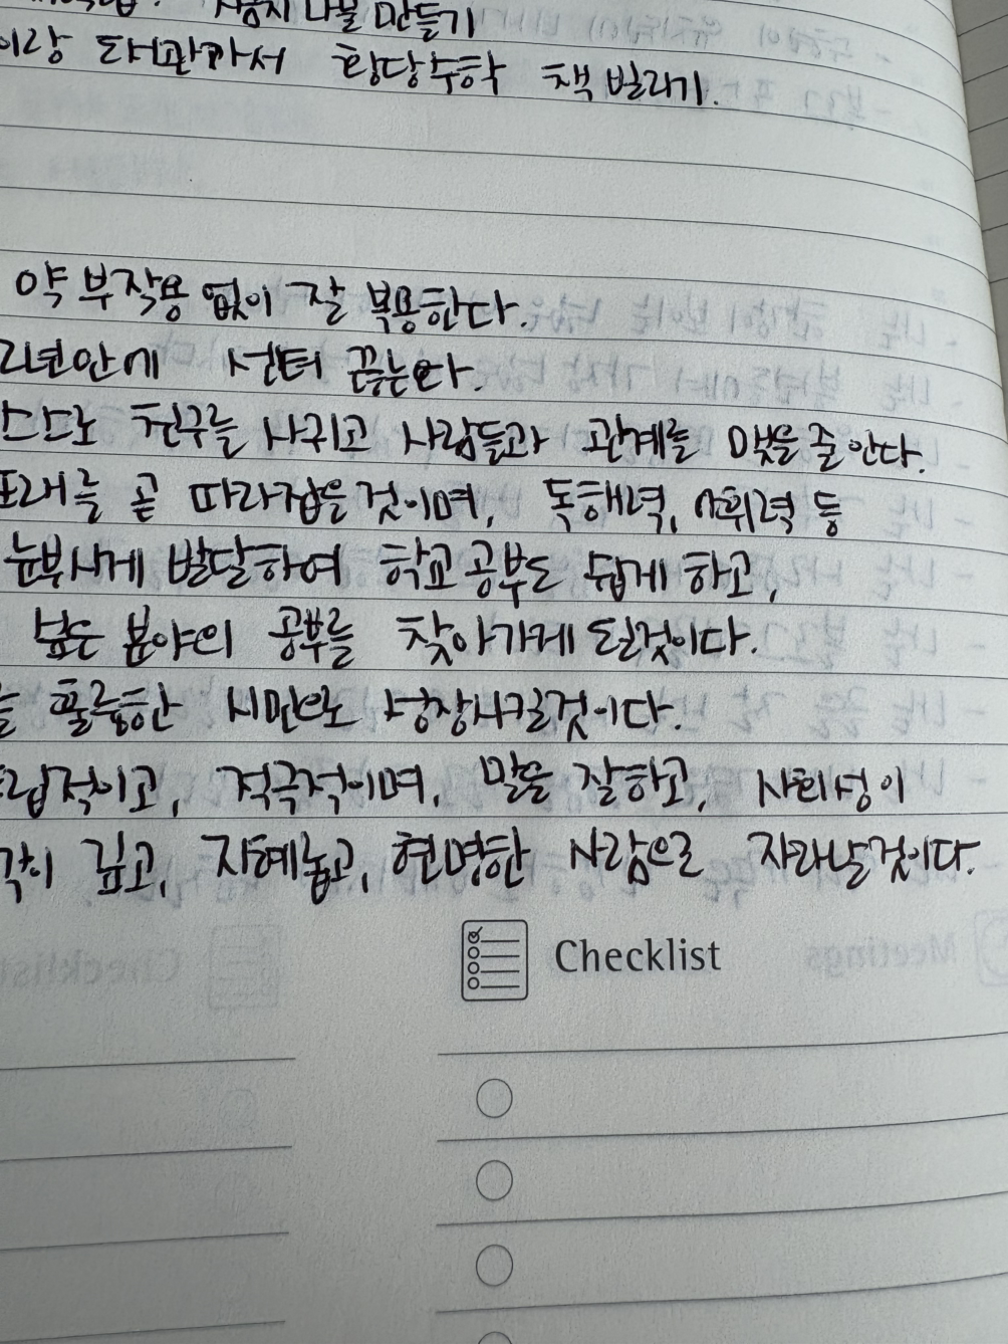 나물 만들기
이랑 도서관가서 황당수학 책 빌리기.
약 부작용 없이 잘 복용한다.
2년안에 센터 끊는다.
스스로 친구를 사귀고 사람들과 관계를 맺을 줄 안다.
또래를 곧 따라잡을것이며, 독해력, 어휘력 등
눈부시게 발달하여 학교공부도 쉽게 하고,
높은 분야의 공부를 찾아가게 될것이다.
를 훌륭한 시민으로 성장시킬것이다.
립적이고, 적극적이며, 말을 잘하고, 사회성이
각이 깊고, 지혜롭고, 현명한 사람으로 자라날것이다.
Checklist